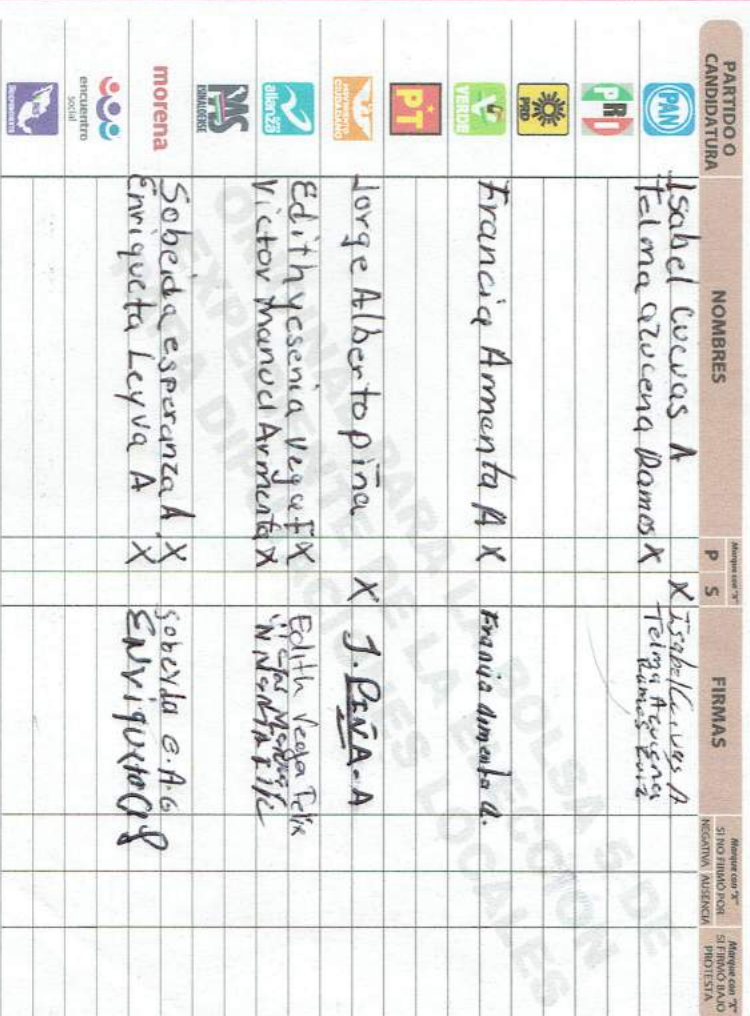 PARTIDO O
CANDIDATURA
NOMBRES
Marque con "X"
P S
FIRMAS
Marque con "X"
SI NO FIRMÓ POR
NEGATIVA AUSENCIA
Marque con "X"
SI FIRMÓ BAJO
PROTESTA
PAN
Isabel Cuevas A X Isabel Cuevas A
Telma azucena Ramos X Telma Azucena
Ramos Ruiz
PRI
PRD
VERDE
Francia Armenta A X Francia Armenta A.
PT
MOVIMIENTO
CIUDADANO
Jorge Alberto piña X J. PIÑA. A
alianza
Edith yesenia Vega F X Edith Vega Felix
Victor manuel Armenta X
PAS
SINALOENSE
morena
Sobeida esperanza A X Sobeyda e. A. G
Enriqueta Leyva A X
encuentro
social
ORIGINAL PARA LA BOLSA DE
EXPEDIENTE DE LA ELECCIÓN
PARA DIPUTACIONES LOCALES